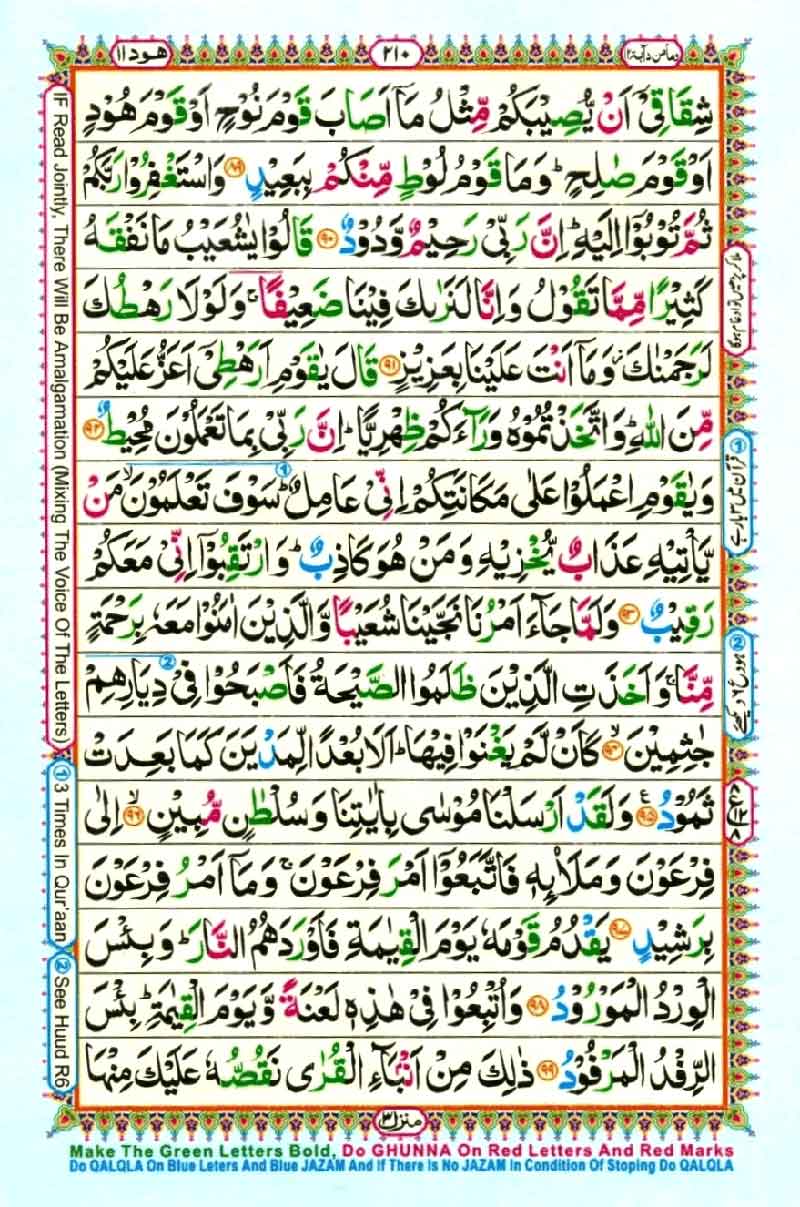 هود ١١
٢١٠
ومآ من دآبة ١٢
شِقَاقِیْۤ اَنْ یُّصِیْبَكُمْ مِّثْلُ مَاۤ اَصَابَ قَوْمَ نُوْحٍ اَوْ قَوْمَ هُوْدٍ
اَوْ قَوْمَ صٰلِحٍ ؕ وَمَا قَوْمُ لُوْطٍ مِّنْكُمْ بِبَعِیْدٍ ﴿۸۹﴾ وَاسْتَغْفِرُوْا رَبَّكُمْ
ثُمَّ تُوْبُوْۤا اِلَیْهِ ؕ اِنَّ رَبِّیْ رَحِیْمٌ وَّدُوْدٌ ﴿۹۰﴾ قَالُوْا یٰشُعَیْبُ مَا نَفْقَهُ
كَثِیْرًا مِّمَّا تَقُوْلُ وَاِنَّا لَنَرٰىكَ فِیْنَا ضَعِیْفًا ۚ وَلَوْلَا رَهْطُكَ
لَرَجَمْنٰكَ ؗ وَمَاۤ اَنْتَ عَلَیْنَا بِعَزِیْزٍ ﴿۹۱﴾ قَالَ یٰقَوْمِ اَرَهْطِیْۤ اَعَزُّ عَلَیْكُمْ
مِّنَ اللّٰهِ ؕ وَاتَّخَذْتُمُوْهُ وَرَآءَكُمْ ظِهْرِیًّا ؕ اِنَّ رَبِّیْ بِمَا تَعْمَلُوْنَ مُحِیْطٌ ﴿۹۲﴾
وَیٰقَوْمِ اعْمَلُوْا عَلٰی مَكَانَتِكُمْ اِنِّیْ عَامِلٌ ؕ سَوْفَ تَعْلَمُوْنَ ۙ مَنْ
یَّاْتِیْهِ عَذَابٌ یُّخْزِیْهِ وَمَنْ هُوَ كَاذِبٌ ؕ وَارْتَقِبُوْۤا اِنِّیْ مَعَكُمْ
رَقِیْبٌ ﴿۹۳﴾ وَلَمَّا جَآءَ اَمْرُنَا نَجَّیْنَا شُعَیْبًا وَّالَّذِیْنَ اٰمَنُوْا مَعَهٗ بِرَحْمَةٍ
مِّنَّا ۚ وَاَخَذَتِ الَّذِیْنَ ظَلَمُوا الصَّیْحَةُ فَاَصْبَحُوْا فِیْ دِیَارِهِمْ
جٰثِمِیْنَ ﴿۹۴﴾ كَاَنْ لَّمْ یَغْنَوْا فِیْهَا ؕ اَلَا بُعْدًا لِّمَدْیَنَ كَمَا بَعِدَتْ
ثَمُوْدُ ﴿۹۵﴾ وَلَقَدْ اَرْسَلْنَا مُوْسٰی بِاٰیٰتِنَا وَسُلْطٰنٍ مُّبِیْنٍ ﴿۹۶﴾ اِلٰی
فِرْعَوْنَ وَمَلَاۡئِهٖ فَاتَّبَعُوْۤا اَمْرَ فِرْعَوْنَ ۚ وَمَاۤ اَمْرُ فِرْعَوْنَ
بِرَشِیْدٍ ﴿۹۷﴾ یَقْدُمُ قَوْمَهٗ یَوْمَ الْقِیٰمَةِ فَاَوْرَدَهُمُ النَّارَ ؕ وَبِئْسَ
الْوِرْدُ الْمَوْرُوْدُ ﴿۹۸﴾ وَاُتْبِعُوْا فِیْ هٰذِهٖ لَعْنَةً وَّیَوْمَ الْقِیٰمَةِ ؕ بِئْسَ
الرِّفْدُ الْمَرْفُوْدُ ﴿۹۹﴾ ذٰلِكَ مِنْ اَنْۢبَآءِ الْقُرٰی نَقُصُّهٗ عَلَیْكَ مِنْهَا
منزل ٣
IF Read Jointly, There Will Be Amalgamation (Mixing The Voice Of The Letters)
① 3 Times In Qur'aan
② See Huud R6
① قرآن میں ۳ بار ہے
Make The Green Letters Bold, Do GHUNNA On Red Letters And Red Marks
Do QALQLA On Blue Leters And Blue JAZAM And If There Is No JAZAM In Condition Of Stoping Do QALQLA